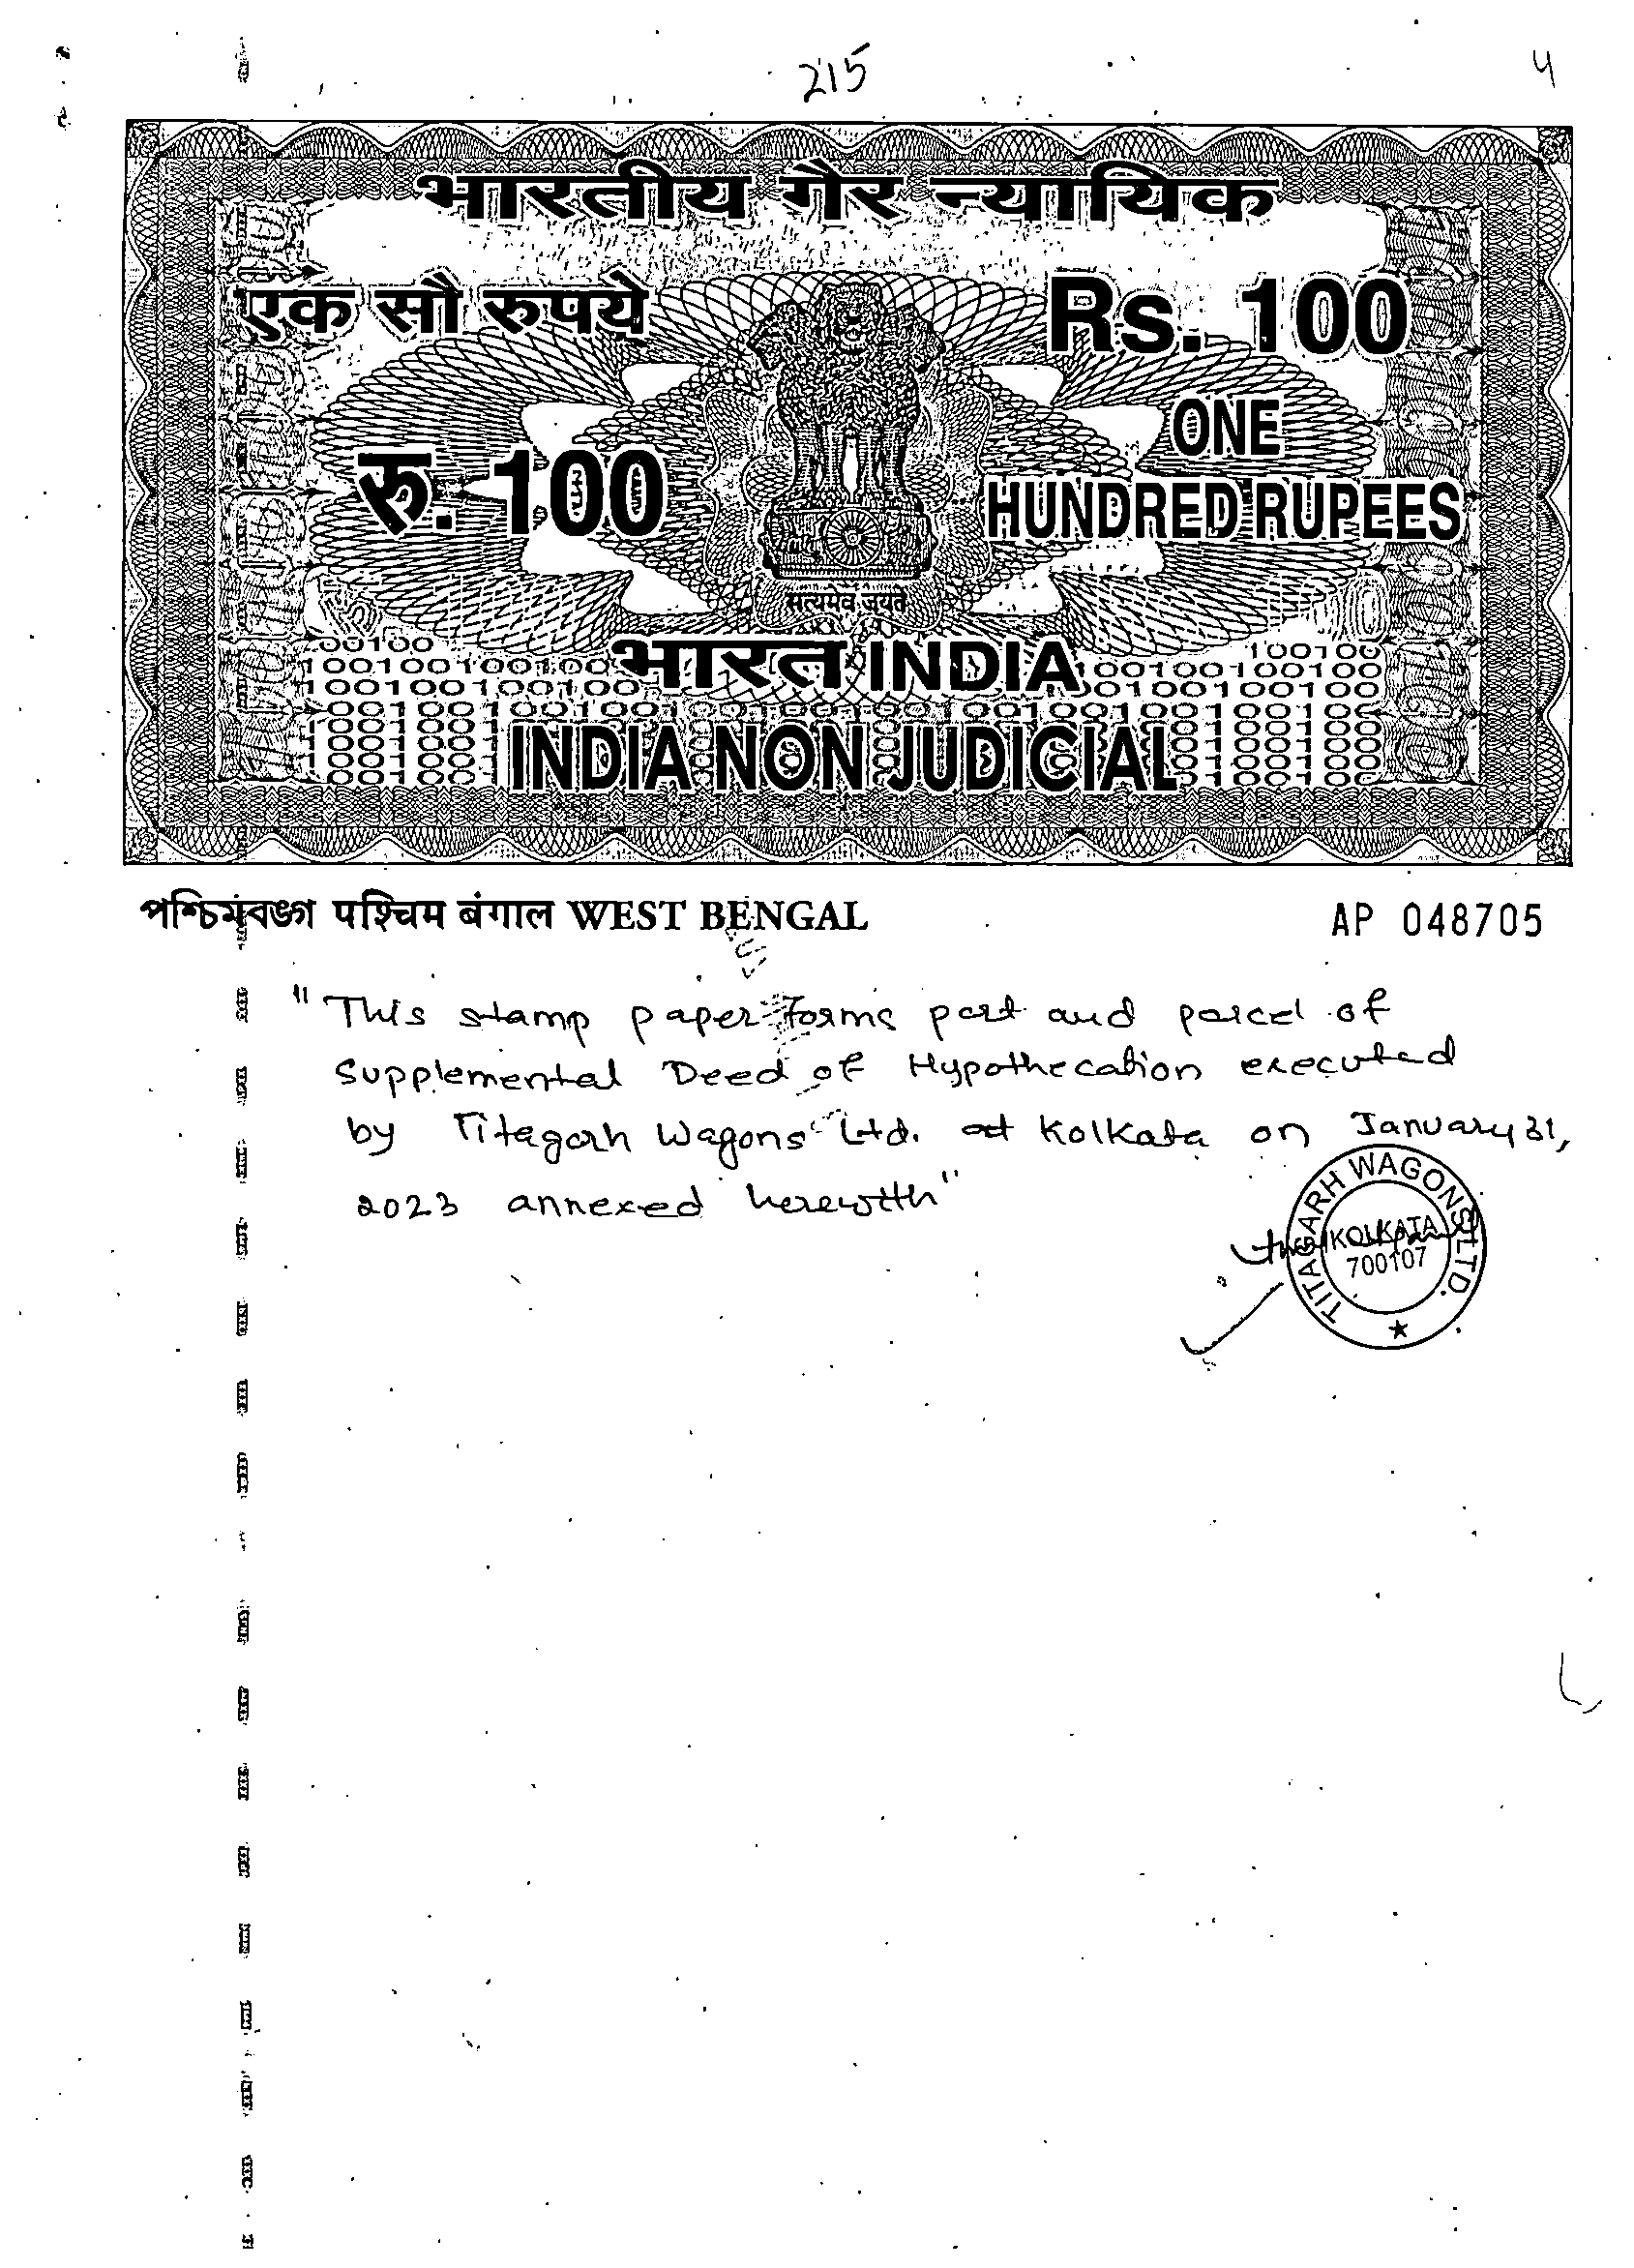 215
4
भारतीय गैर न्यायिक
एक सौ रुपये
Rs. 100
रु. 100
ONE
HUNDRED RUPEES
सत्यमेव जयते
भारत INDIA
INDIA NON JUDICIAL
পশ্চিমবঙ্গ पश्चिम बंगाल WEST BENGAL
AP 048705
"This stamp paper forms part and parcel of
Supplemental Deed of Hypothecation executed
by Titagarh Wagons Ltd. at Kolkata on January 31,
2023 annexed herewith"
TITAGARH WAGONS LTD.
KOLKATA
700107